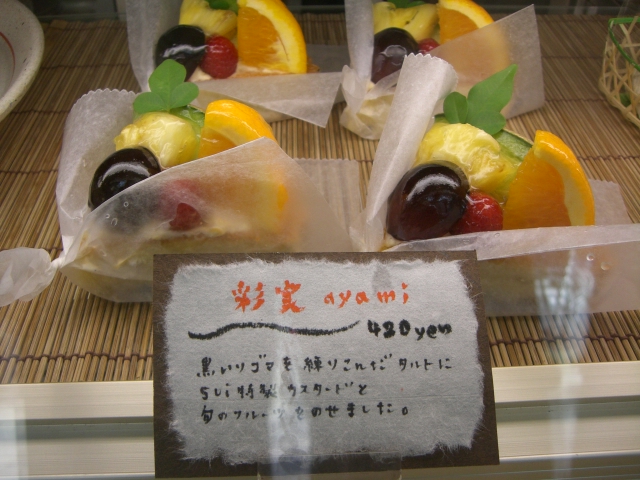 彩実 ayami
420yen
黒いりゴマを練りこんだタルトに
sui特製カスタードと
旬のフルーツをのせました。